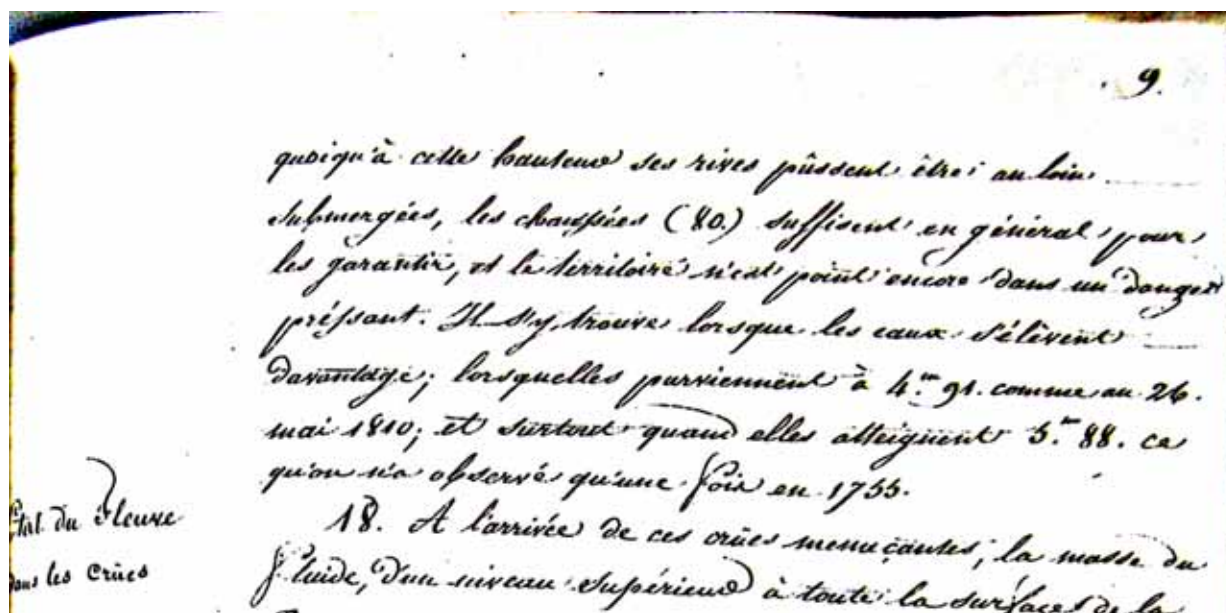 9.
quoiqu'à cette hauteur ses rives pûssent être au loin
submergées, les chaussées (80.) suffisent en général pour
les garantir, et le territoire n'est point encore dans un danger
préssant. Il s'y trouve lorsque les eaux s'élèvent
davantage; lorsquelles parviennent à 4.m 91. comme au 26.
mai 1810; et surtout quand elles atteignent 5.m 88. ce
qu'on n'a observé qu'une fois en 1755.
État du Fleuve
dans les crües
18. A l'arrivée de ces crües menaçantes, la masse du
fluide, d'un niveau supérieur à toute la surface de la